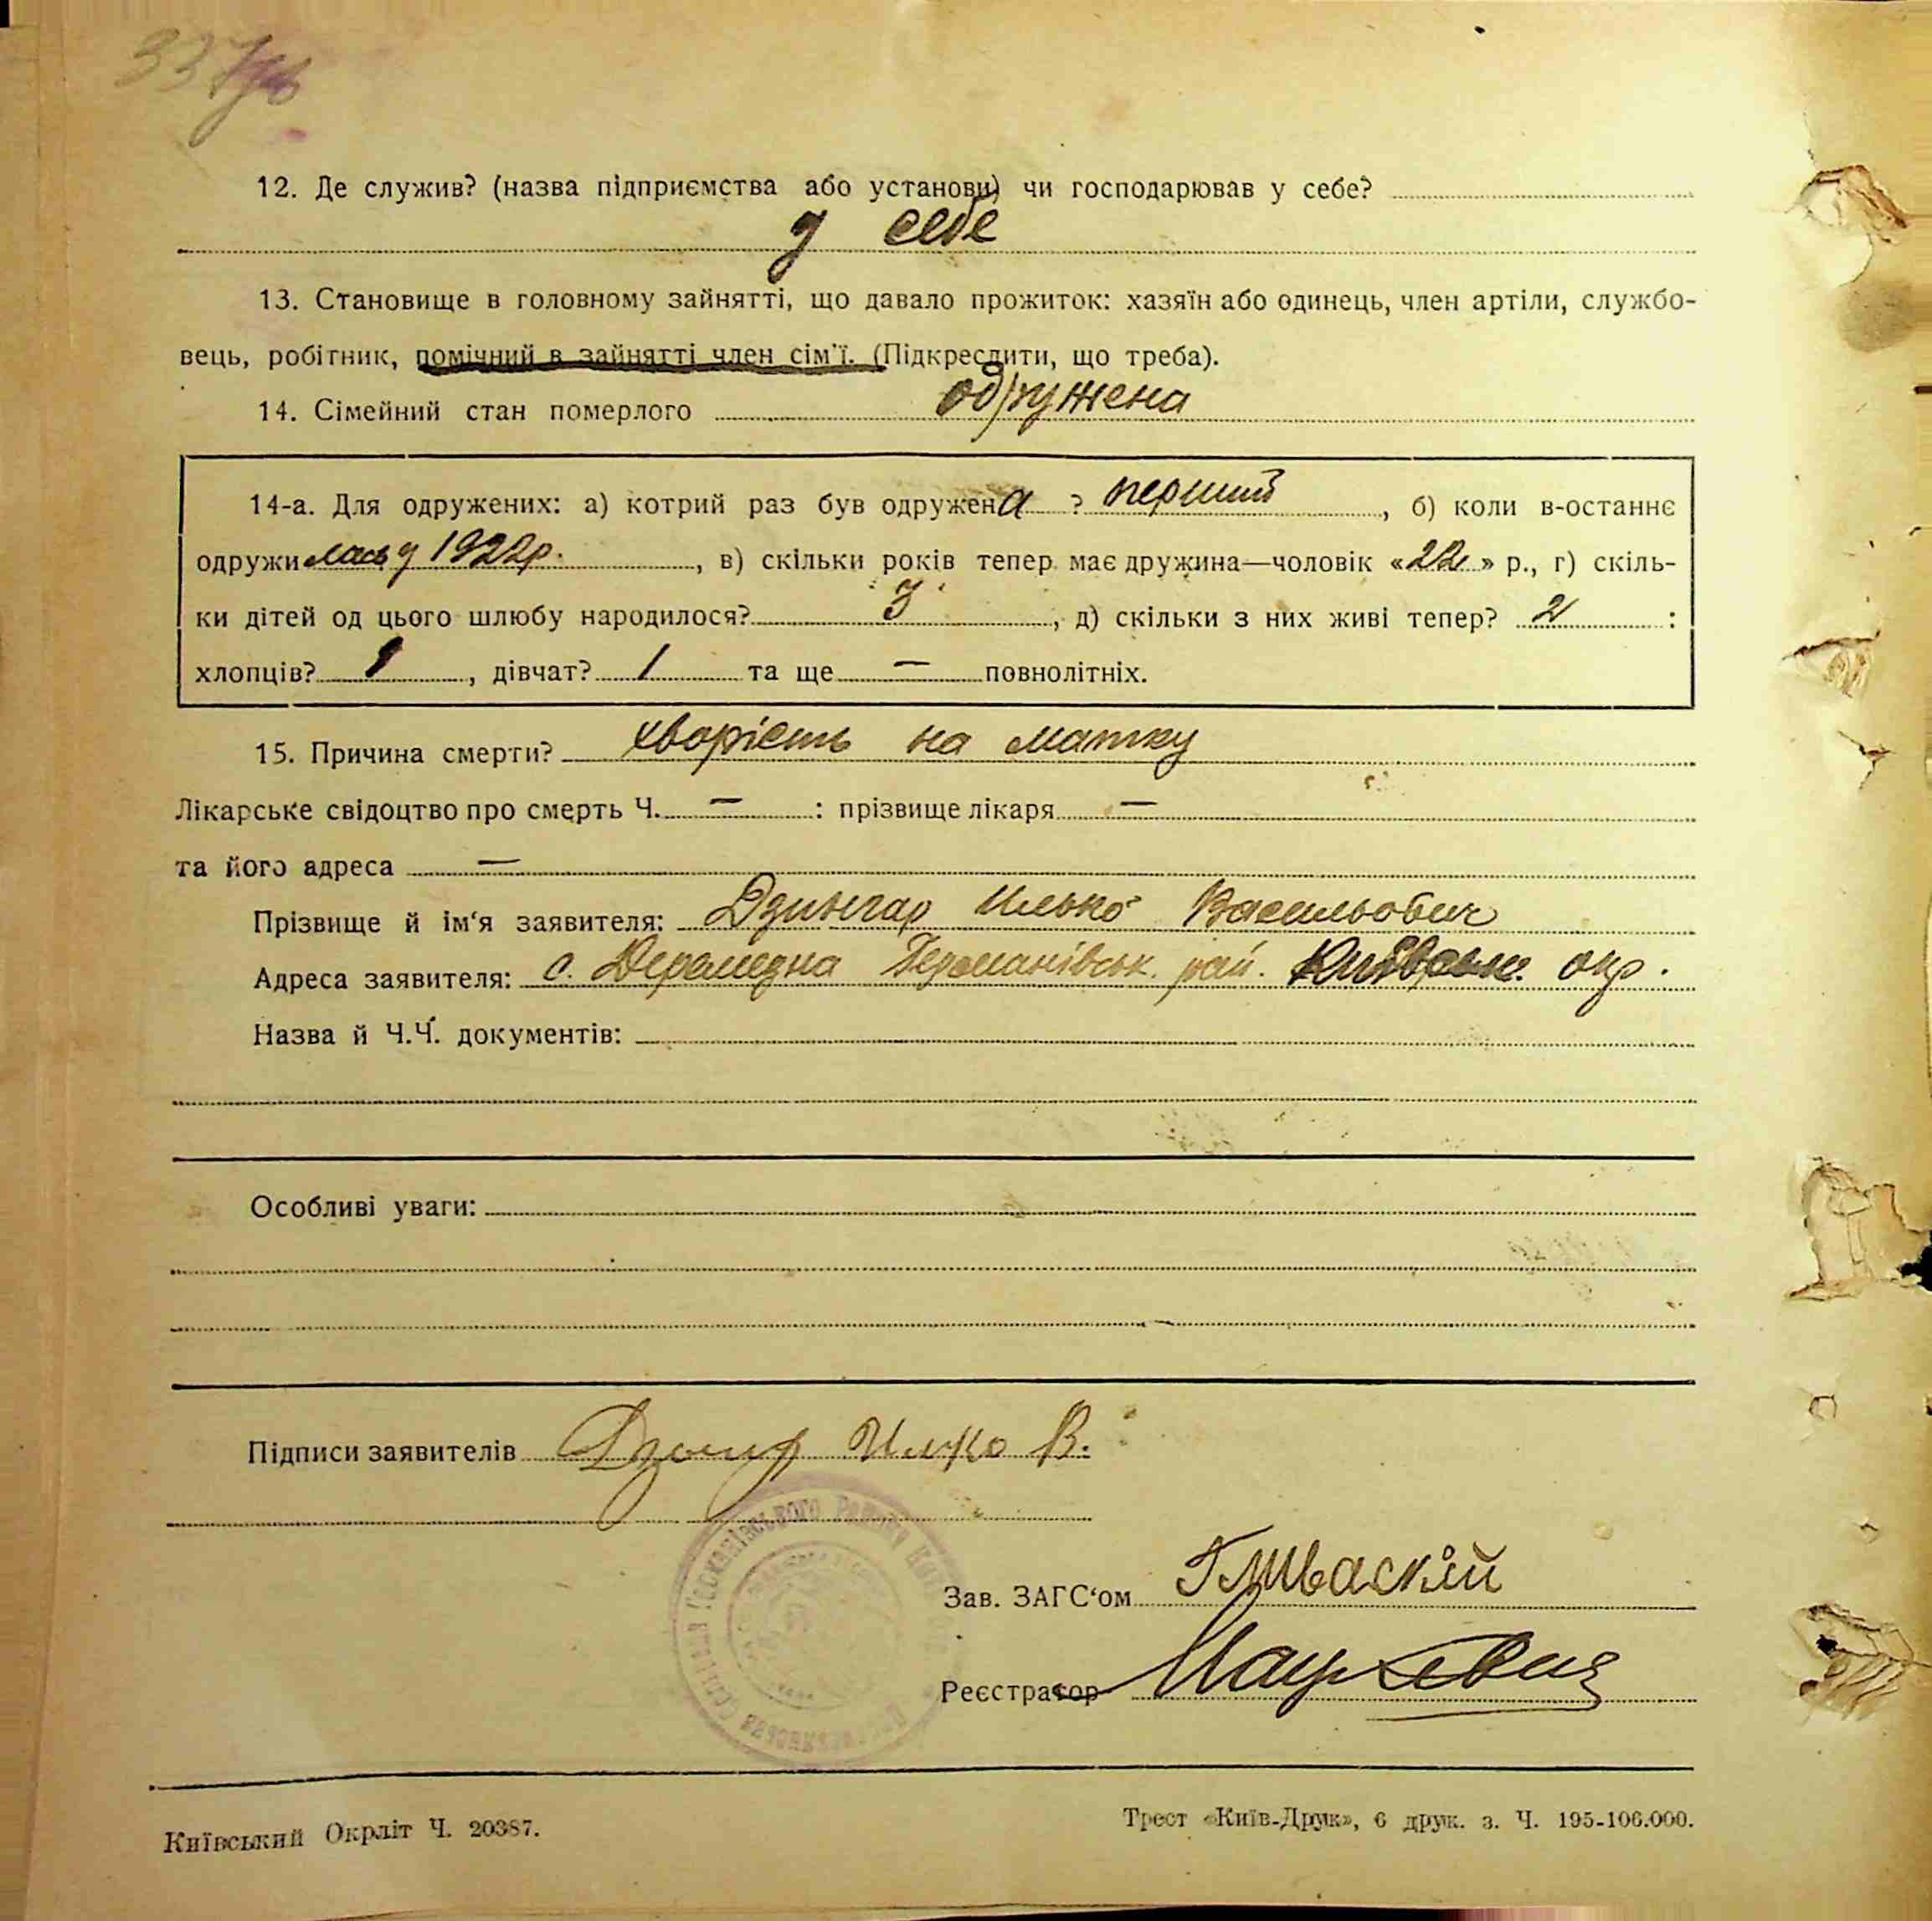 337
12. Де служив? (назва підприємства або установи) чи господарював у себе?
у себе
13. Становище в головному зайнятті, що давало прожиток: хазяїн або одинець, член артіли, службо-
вець, робітник, помічний в зайнятті член сім'ї. (Підкреслити, що треба).
14. Сімейний стан померлого одружена
14-а. Для одружених: а) котрий раз був одружена ? перший, б) коли в-останнє
одружилась у 1922р., в) скільки років тепер має дружина—чоловік «22» р., г) скіль-
ки дітей од цього шлюбу народилося? 3, д) скільки з них живі тепер? 2 :
хлопців? 1, дівчат? 1 та ще — повнолітніх.
15. Причина смерти? хворість на матку
Лікарське свідоцтво про смерть Ч. — : прізвище лікаря —
та його адреса —
Прізвище й ім'я заявителя: Ілько Васильович
Адреса заявителя: с. Германівськ. рай. Київськ. окр.
Назва й Ч.Ч. документів:
Особливі уваги:
Підписи заявителів Илко В.
Зав. ЗАГС'ом
Реєстратор
Київський Окрліт Ч. 20387.
Трест «Київ-Друк», 6 друк. з. Ч. 195-106.000.